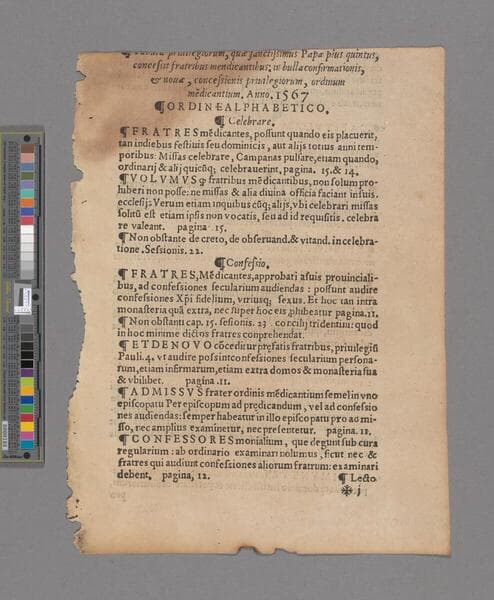 priuilegiorum, quæ sanctissimus Papæ pius quintus,
concessit fratribus mendicantibus: in bulla confirmationis,
& nouæ, concessionis priuilegiorum, ordinum
mẽdicantium. Anno. 1567
¶ ORDINE ALPHABETICO.
¶ Celebrare.
¶ FRATRES mẽdicantes, possunt quando eis placuerit,
tan indiebus festiuis seu dominicis, aut alijs totius anni tem
poribus: Missas celebrare, Campanas pulsare, etiam quando,
ordinarij & alij quicũq; celebrauerint, pagina. 15. & 14.
¶ VOLVMVS q̃ fratribus mẽdicantibus, non solum pro-
huberi non posse: ne missas & alia diuina officia faciant in suis.
ecclesij: Verum etiam inquibus cũq; alijs, vbi celebrari missas
solitũ est etiam ipsis non vocatis, seu ad id requisitis. celebra
re valeant. pagina 15.
¶ Non obstante de creto, de obseruand. & vitand. in celebra-
tione. Sessionis. 22.
¶ Confessio.
¶ FRATRES, Mẽdicantes, approbati a suis prouinciali-
bus, ad confessiones secularium audiendas : possunt audire
confessiones Xp̃i fidelium, vtriusq; sexus. Et hoc tan intra
monasteria quã extra, nec super hoc eis, p̃hibeatur pagina. 11.
¶ Non obstanti cap. 15. sesionis. 23 concilij tridentini: quod
in hoc minime dictos fratres conprehendat.
¶ ET DENOVO cõceditur prefatis fratribus, priuilegiũ
Pauli. 4. vt audire possint confessiones secularium persona-
rum, etiam infirmarum, etiam extra domos & monasteria sua
& vbilibet. pagina. 11.
¶ ADMISSVS frater ordinis mẽdicantium semel in vno
episcopatu Per episcopum ad prędicandum, vel ad confessio
nes audiendas: semper habeatur in illo episcopatu pro ad mis-
so, nec amplius examinetur, nec presentetur. pagina. 12,
¶ CONFESSORES monialium, que degunt sub cura
regularium: ab ordinario examinari nolumus, sicut nec &
fratres qui audiunt confessiones aliorum fratrum: examinari
debent. pagina, 12. ¶ Lecto
✠ j